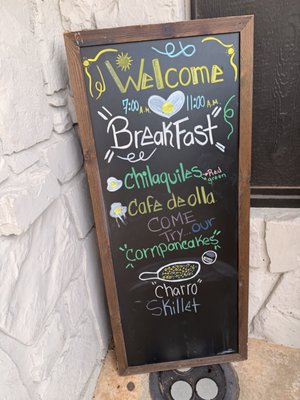 Welcome
7:00 A.M. 11:00 A.M.
BreakFast
Chilaquiles Red
green
Cafe de olla
COME
Try... our
Cornpancakes
"Charro"
Skillet